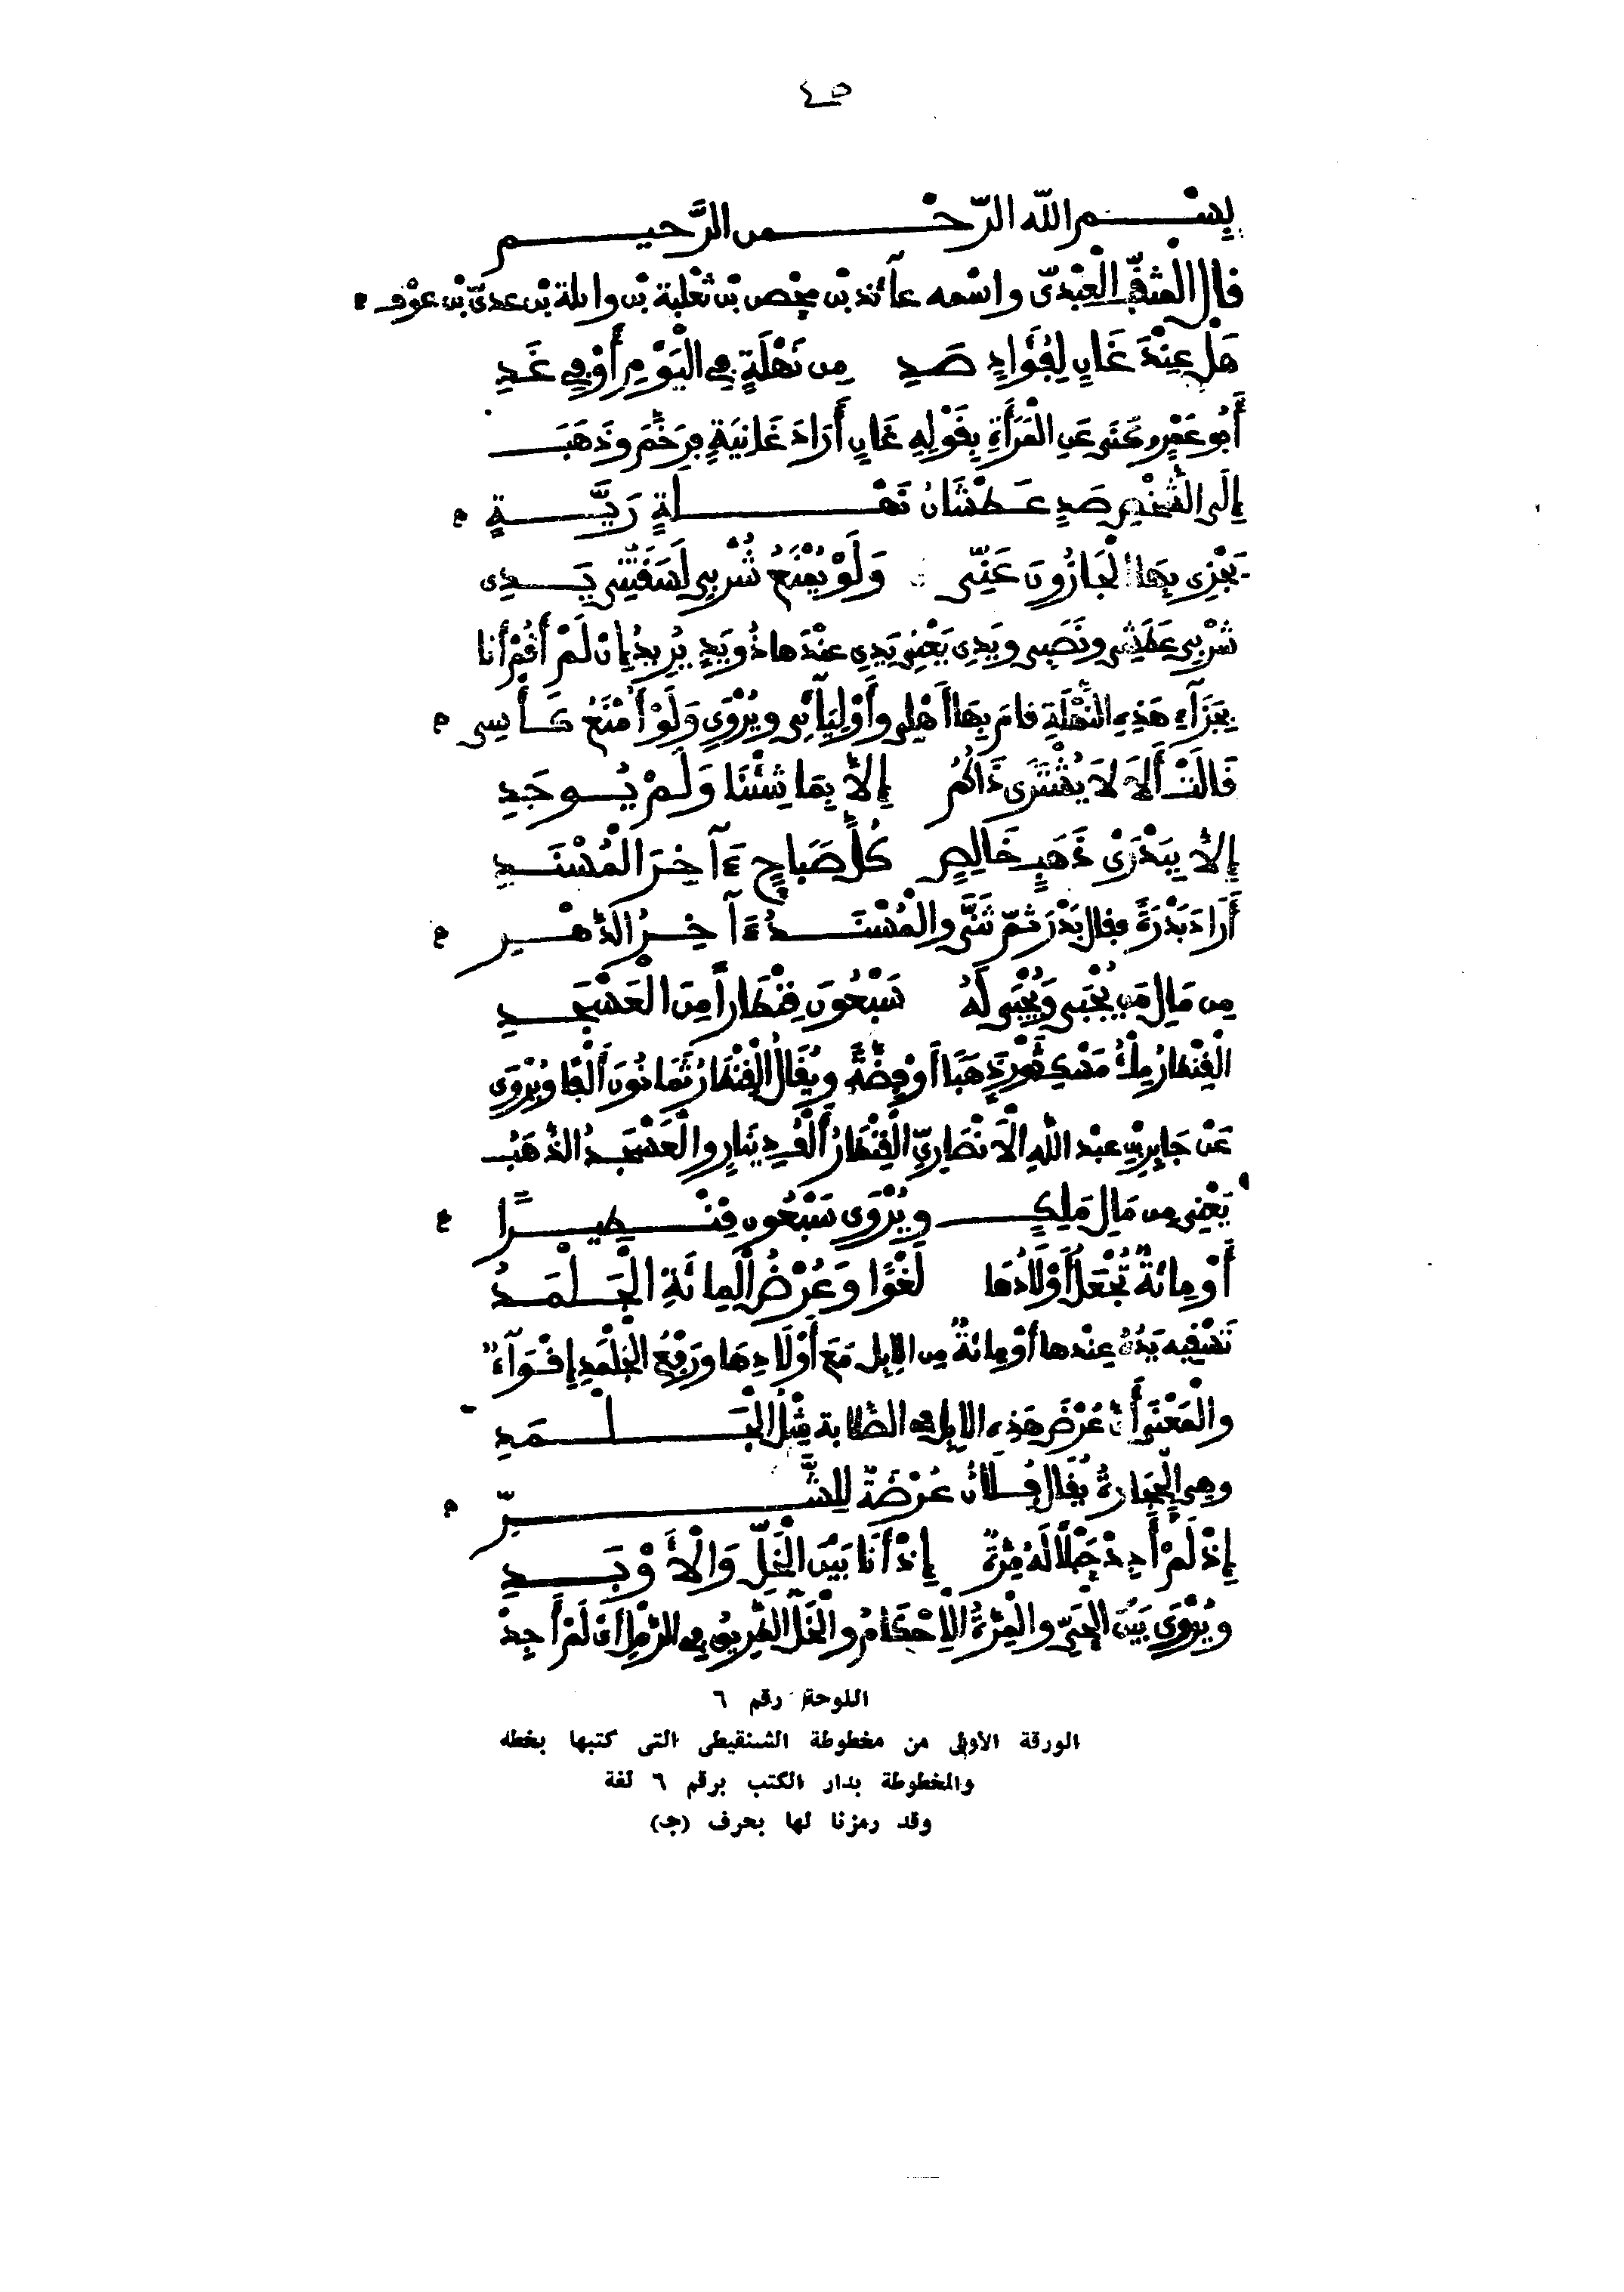 بِسْم الله الرّحْمن الرَّحيم
قال المثقّب العَبْدىّ واسْمه عآئذ بْن مِحْصن بْن ثعْلبة بْن واىلة بْن عدىّ بْن عوْف
هَلْ عِنْدَ غَانٍ لِفُؤَادٍ صَدِ مِن نَهْلَةٍ فِي الْيَوْمِ أَوْ فِي غَدِ
أَبُو عَمْرٍو كَنَى عَنِ الْمَرْأَةِ بِقَوْلِهِ غَانٍ أَرَادَ غَانِيَةٍ فَرَخَّمَ وذَهَبَ
إِلَى الشَّخْصِ صَدٍ عَطْشَانُ نَهْلَةٍ رَيَّةٍ
يَجْزِى بِهَا الْجَازُونَ عَنِّى وَلَوْ يُمْنَعُ شُرْبِى لَسَقَتْنِى يَدِى
شُرْبِى عَطَشِى ونَصَبِى ويَدِى يَعْنِى يَدِى عِنْدَها ذُو يَدٍ يُرِيدُ إِن لَمْ أَقُمْ أنا
بِجَزَآءِ هَذِهِ النَّهْلَةِ قامَ بِهَا أَهْلِى وأَوْلِيَآئِى ويُرْوَى وَلَوْ أُمْنَعُ كَأْسِى
قَالَتْ أَلَا لَا يُشْتَرَى ذَاكُمُ إِلَّا بِمَا شِئْنَا وَلَمْ يُوجَدِ
إِلَّا بِبَدْرَىْ ذَهَبٍ خَالِصٍ كُلَّ صَبَاحٍ ءَآخِرَ الْمُسْنَدِ
أَرَادَ بَدْرَةً فقال بَدْرَ ثمّ ثَنَّى والْمُسْنَدُ ءَآخِرُ الدَّهْرِ
مِن مَالِ مَن يُجْبَى وَيُجْبَى لَهُ سَبْعُونَ قِنْطَاراً مِنَ الْعَسْجَدِ
الْقِنْطَارُ مِلْءُ مَسْكِ ثَوْرٍ ذَهَبًا أَوْ فِضَّةً ويُقَالُ الْقِنْطَارُ ثَمَانُونَ أَلْفًا ويُرْوَى
عَنْ جَابِرِ بْنِ عبْد اللهِ الْأَنْصَارِيِّ الْقِنْطَارُ أَلْفُ دِينَارٍ والْعَسْجَدُ الذَّهَبُ
يَعْنِى مِن مَالِ مَلِكٍ ويُرْوَى سَبْعُون قِنْطِيرًا
أَوْ مِائَةٌ تُجْعَلُ أَوْلَادُهَا لَغْوًا وَعُرْضُ الْمِائَةِ الْجَلْمَدُ
تَسْقِيه يَدُهُ عِنْدها أَوْ مِائَةٌ مِن الإِبِلِ مَعَ أَوْلَادِهَا ورَفْعُ الْجَلْمَدِ إِقْوَآءٌ
والْمَعْنَى أَنَّ عُرْضَ هَذِهِ الإِبِلِ فى الصَّلابة مِثْلُ الْجَلْمَدِ
وهِىَ الْحِجَارَةُ يُقَالُ فُلَانٌ عُرْضَةٌ لِلشَّرِّ
إِذْ لَمْ أَجِدْ حَبْلًا لَهُ مِرَّةٌ إِذْ أَنَا بَيْنَ الْخَلِّ وَالْأَوْبَدِ
ويُرْوَى بَيْنَ الْحَىِّ والْمِرَّةُ الْإِحْكَامُ والْخَلُّ الطَّرِيقُ فى الرَّمْلِ أَىْ لَمْ أَجِدْ
اللوحة رقم ٦
الورقة الأولى من مخطوطة الشنقيطى التى كتبها بخطه
والمخطوطة بدار الكتب برقم ٦ لغة
وقد رمزنا لها بحرف (ج)